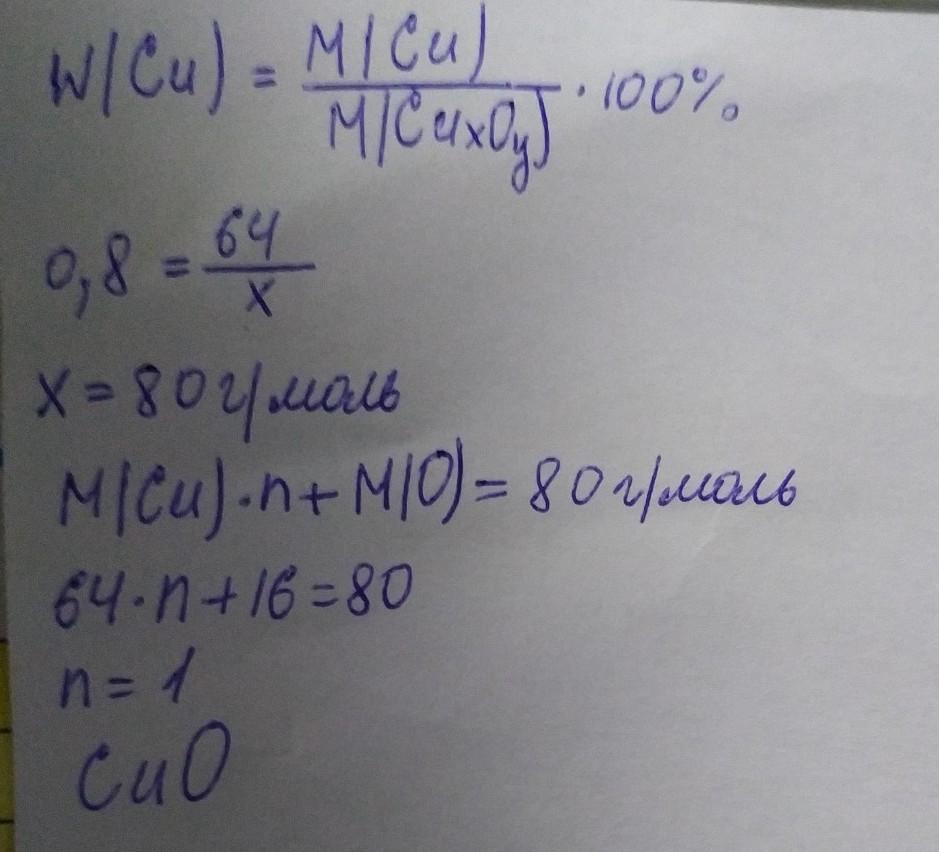 W(Cu) = M(Cu) / M(CuxOy) · 100%
0,8 = 64 / x
x = 80 г/моль
M(Cu)·n + M(O) = 80 г/моль
64·n + 16 = 80
n = 1
CuO